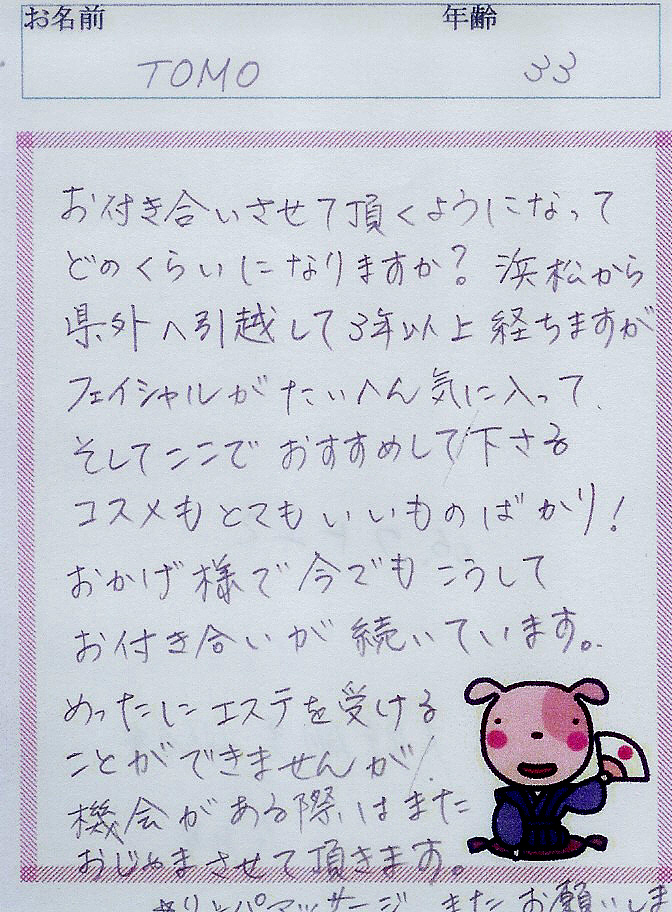 お名前 年齢
TOMO 33
お付き合いさせて頂くようになって
どのくらいになりますか？浜松から
県外へ引越して3年以上経ちますが
フェイシャルがたいへん気に入って、
そしてここでおすすめして下さる
コスメもとてもいいものばかり！
おかげ様で今でもこうして
お付き合いが続いています。
めったにエステを受ける
ことができませんが、
機会がある際はまた
おじゃまさせて頂きます。
リンパマッサージ またお願いしま